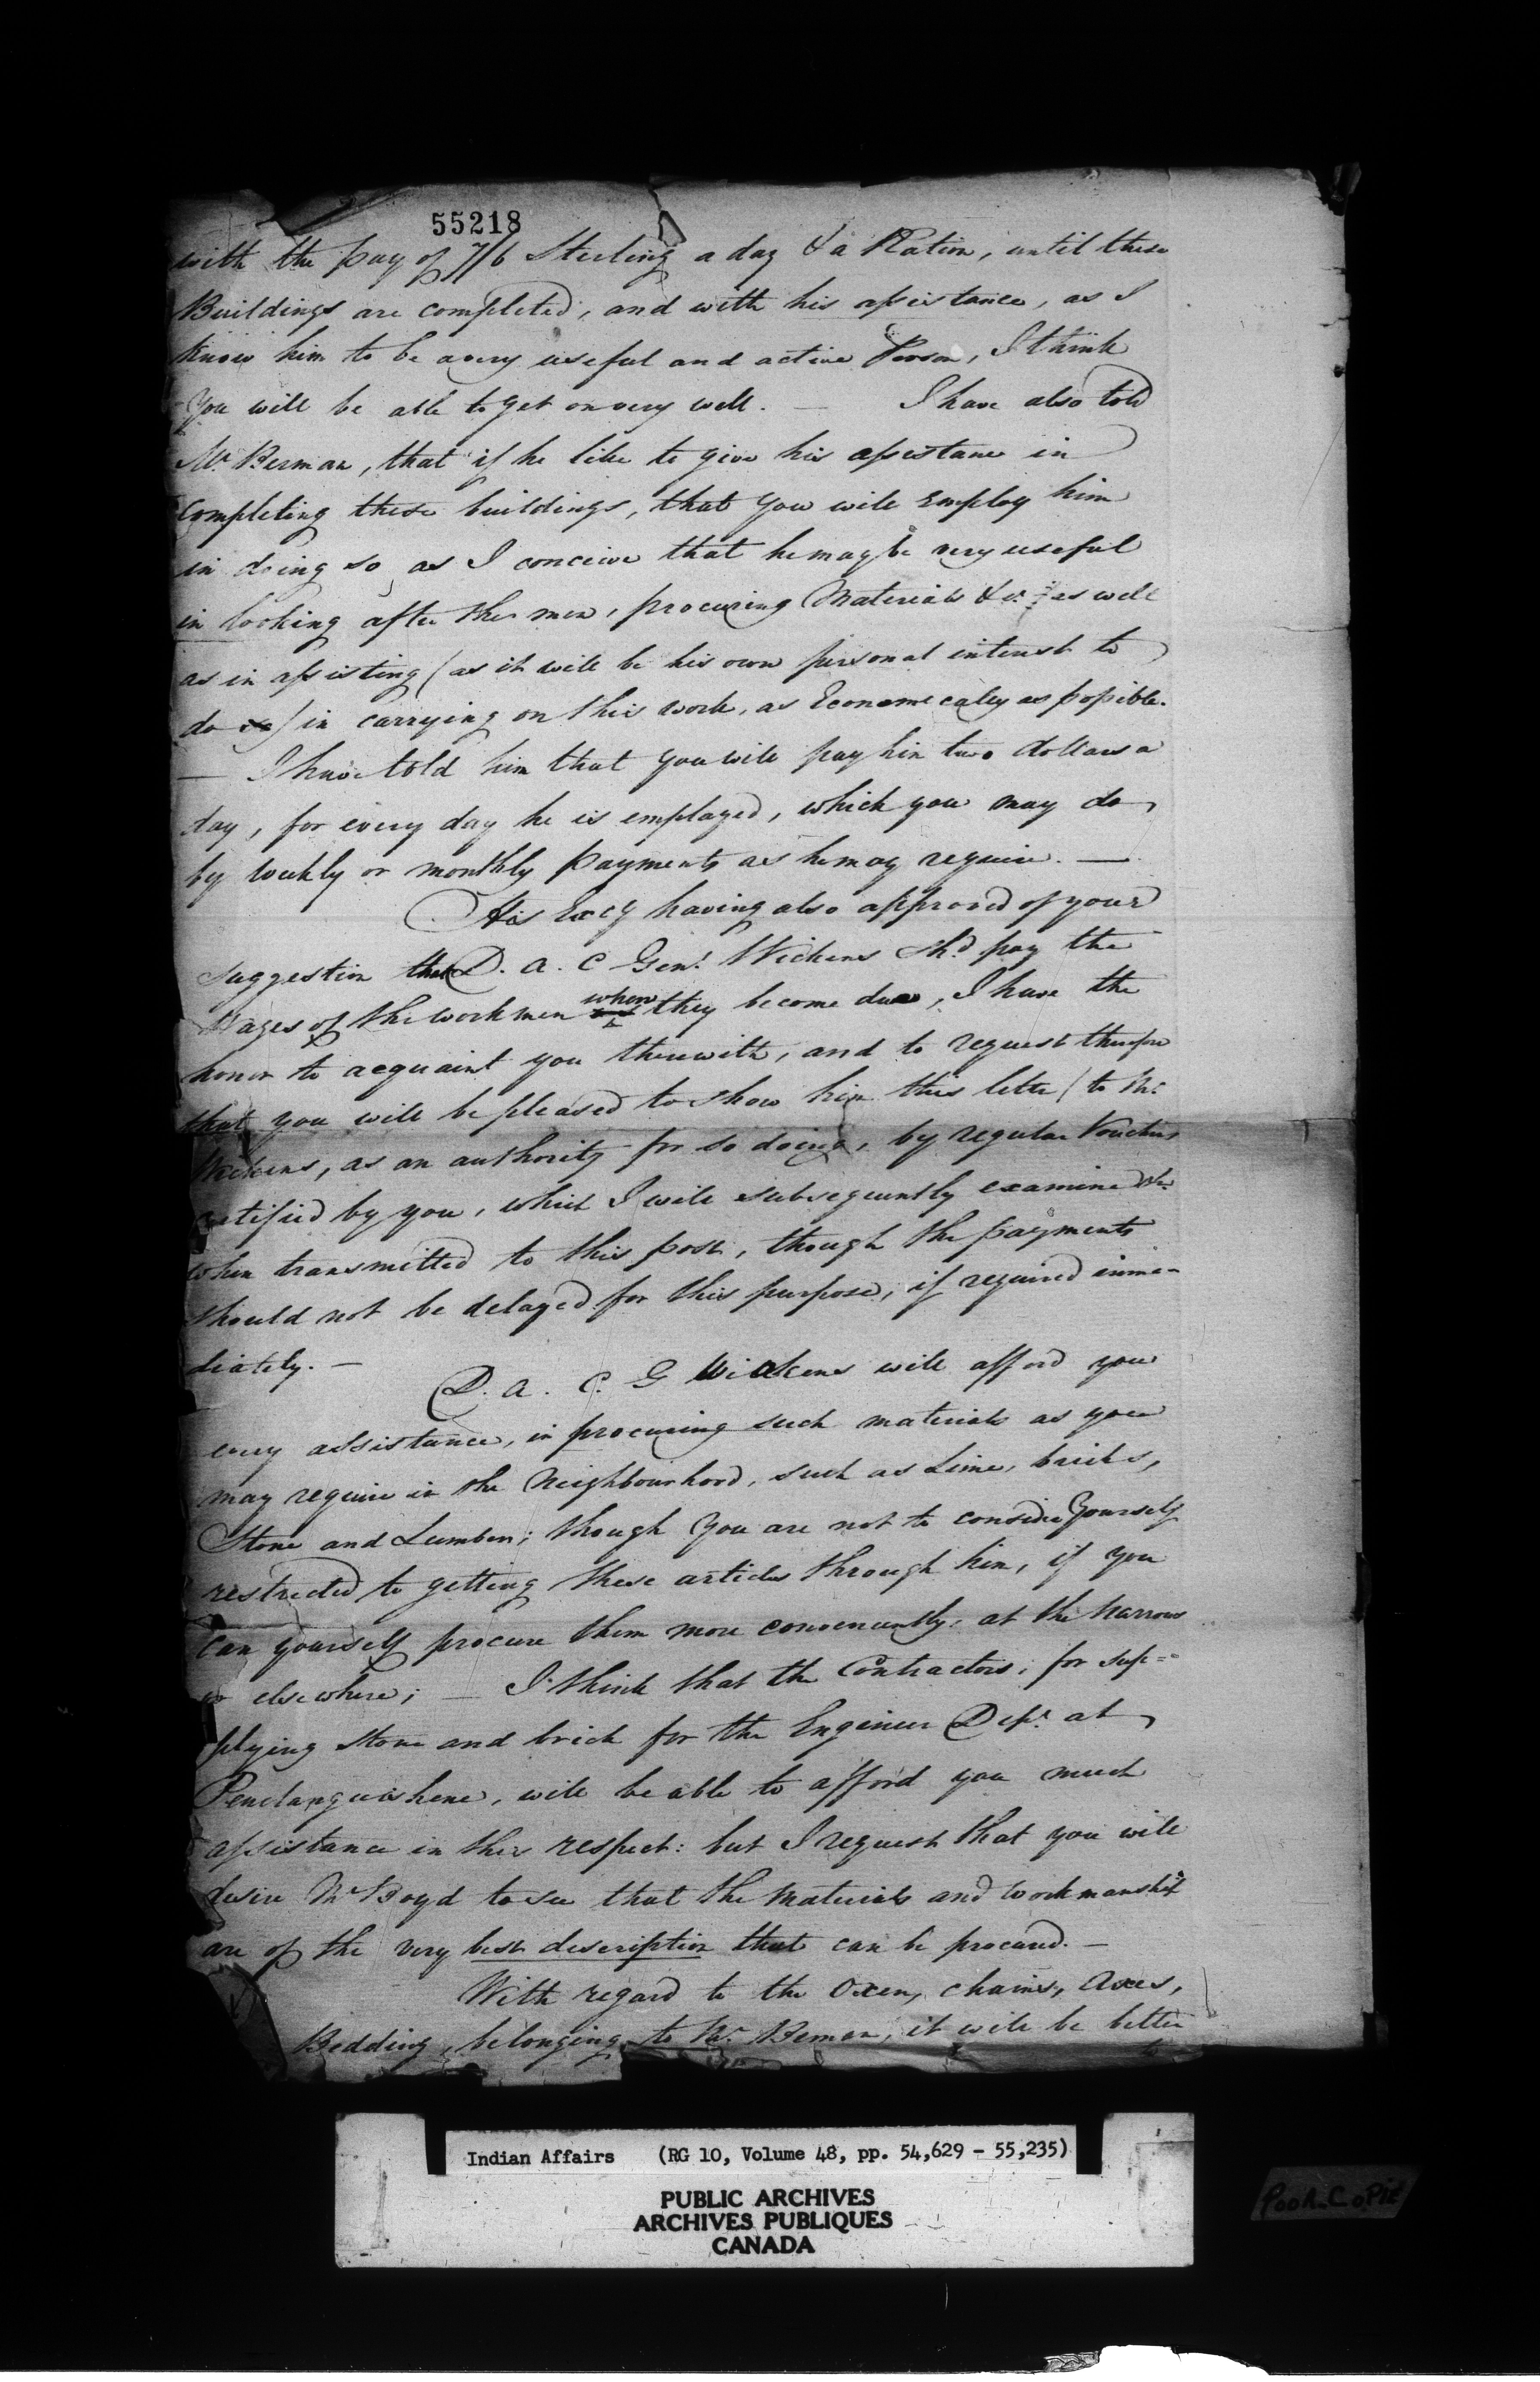 55218
with the pay of 7/6 Sterling a day & a Ration, until these
Buildings are completed, and with his assistance, as I
know him to be a very useful and active Person, I think
You will be able to get on very well. — I have also told
Mr. Berman, that if he like to give his assistance in
completing these buildings, that you will Employ him
in doing so, as I conceive that he may be very useful
in looking after the men, procuring Materials &c. as well
as in assisting (as it will be his own personal interest to
do so) in carrying on this work, as Economically as possible.
— I have told him that you will pay him two dollars a
day, for every day he is employed, which you may do,
by weekly or monthly payments as he may require. —
His Excy having also approved of your
suggestion that D. A. C Genl. Wickens shd. pay the
Wages of the workmen when they become due, I have the
honor to acquaint you therewith, and to request therefore
that you will be pleased to show him this letter (to Mr.
Wickens, as an authority for so doing, by regular Vouchers
certified by you, which I will subsequently examine
when transmitted to this post, though the payments
should not be delayed for this purpose, if required imme-
diately. —
D. A. C. G Wickens will afford you
every assistance, in procuring such materials as you
may require in the Neighbourhood, such as Lime, bricks,
Stone and Lumber; though You are not to consider Yourself
restricted to getting these articles through him, if you
can yourself procure them more conveniently, at the Narrows
or elsewhere; — I think that the Contractors, for sup=
plying Stone and brick for the Engineer Dept. at
Penetanguishene, will be able to afford you much
assistance in this respect: but I request that you will
desire Mr Boyd to see that the Materials and workmanship
are of the very best description that can be procured. —
With regard to the Oxen, chains, Axes,
Bedding, belonging to Mr. Beman, it will be better
to
Indian Affairs (RG 10, Volume 48, pp. 54,629 - 55,235)
PUBLIC ARCHIVES
ARCHIVES PUBLIQUES
CANADA
POOR COPIE